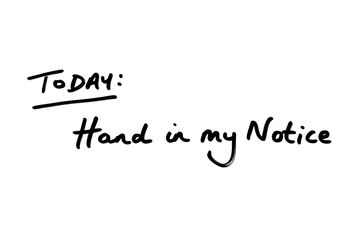 TODAY:
Hand in my Notice